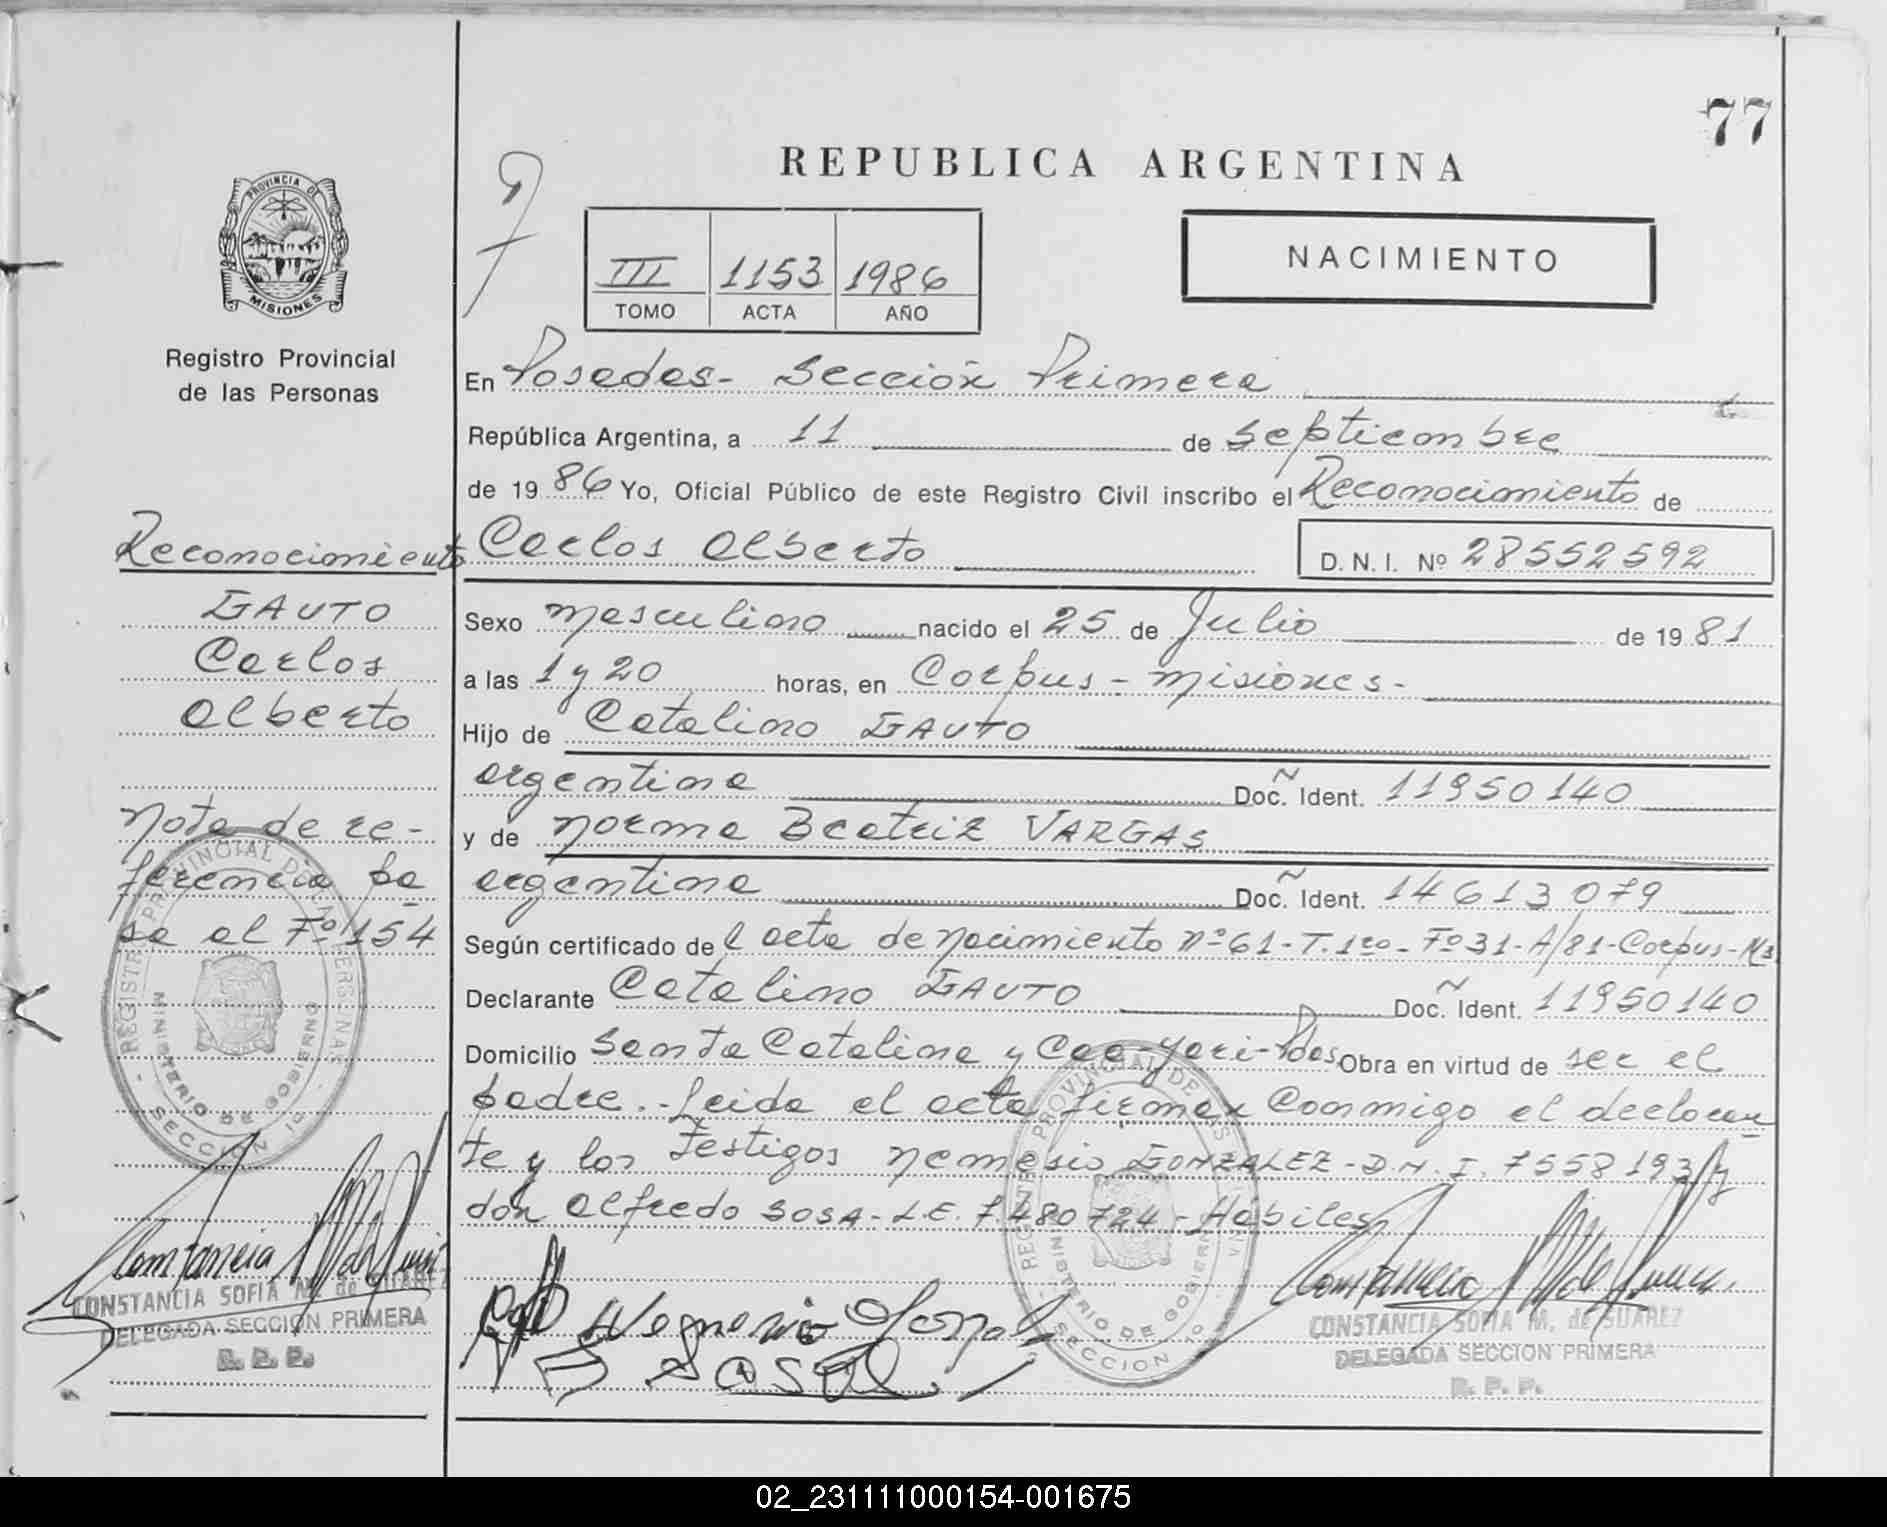 77
REPUBLICA ARGENTINA
PROVINCIA DE
MISIONES
Registro Provincial
de las Personas
III 1153 1986
TOMO ACTA AÑO
NACIMIENTO
En Posadas - Sección Primera
República Argentina, a 11 de septiembre
de 1986 Yo, Oficial Público de este Registro Civil inscribo el Reconocimiento de
Carlos Alberto D. N. I. Nº 28552592
Sexo masculino nacido el 25 de Julio de 1981
a las 1 y 20 horas, en Corpus - misiones -
Hijo de Catalino GAUTO
argentina Doc. Ident. 11950140
y de norma Beatriz VARGAS
argentina Doc. Ident. 14613079
Según certificado de l acta de nacimiento nº 61 - T. 1ro - Fº 31 - A/81 - Corpus - Ms
Declarante Catalino GAUTO Doc. Ident. 11950140
Domicilio Santa Catalina y Caa-Yari - Pdas Obra en virtud de ser el
padre. - Leida el acta firman conmigo el declaran
te y los testigos nemesio GONZALEZ - D.N.I. 7558193 y
don Alfredo SOSA - L.E. 7.480724 - Habiles
Reconocimiento
GAUTO
Carlos
Alberto
Nota de re-
ferencia pa
sa al Fº 154
REGISTRO PROVINCIAL DE LAS PERSONAS
MINISTERIO DE GOBIERNO
SECCION 1º
CONSTANCIA SOFIA M. de SUAREZ
DELEGADA SECCION PRIMERA
R. P. P.
MINISTERIO DE GOBIERNO
SECCION 1º
CONSTANCIA SOFIA M. de SUAREZ
DELEGADA SECCION PRIMERA
R. P. P.
02_231111000154-001675